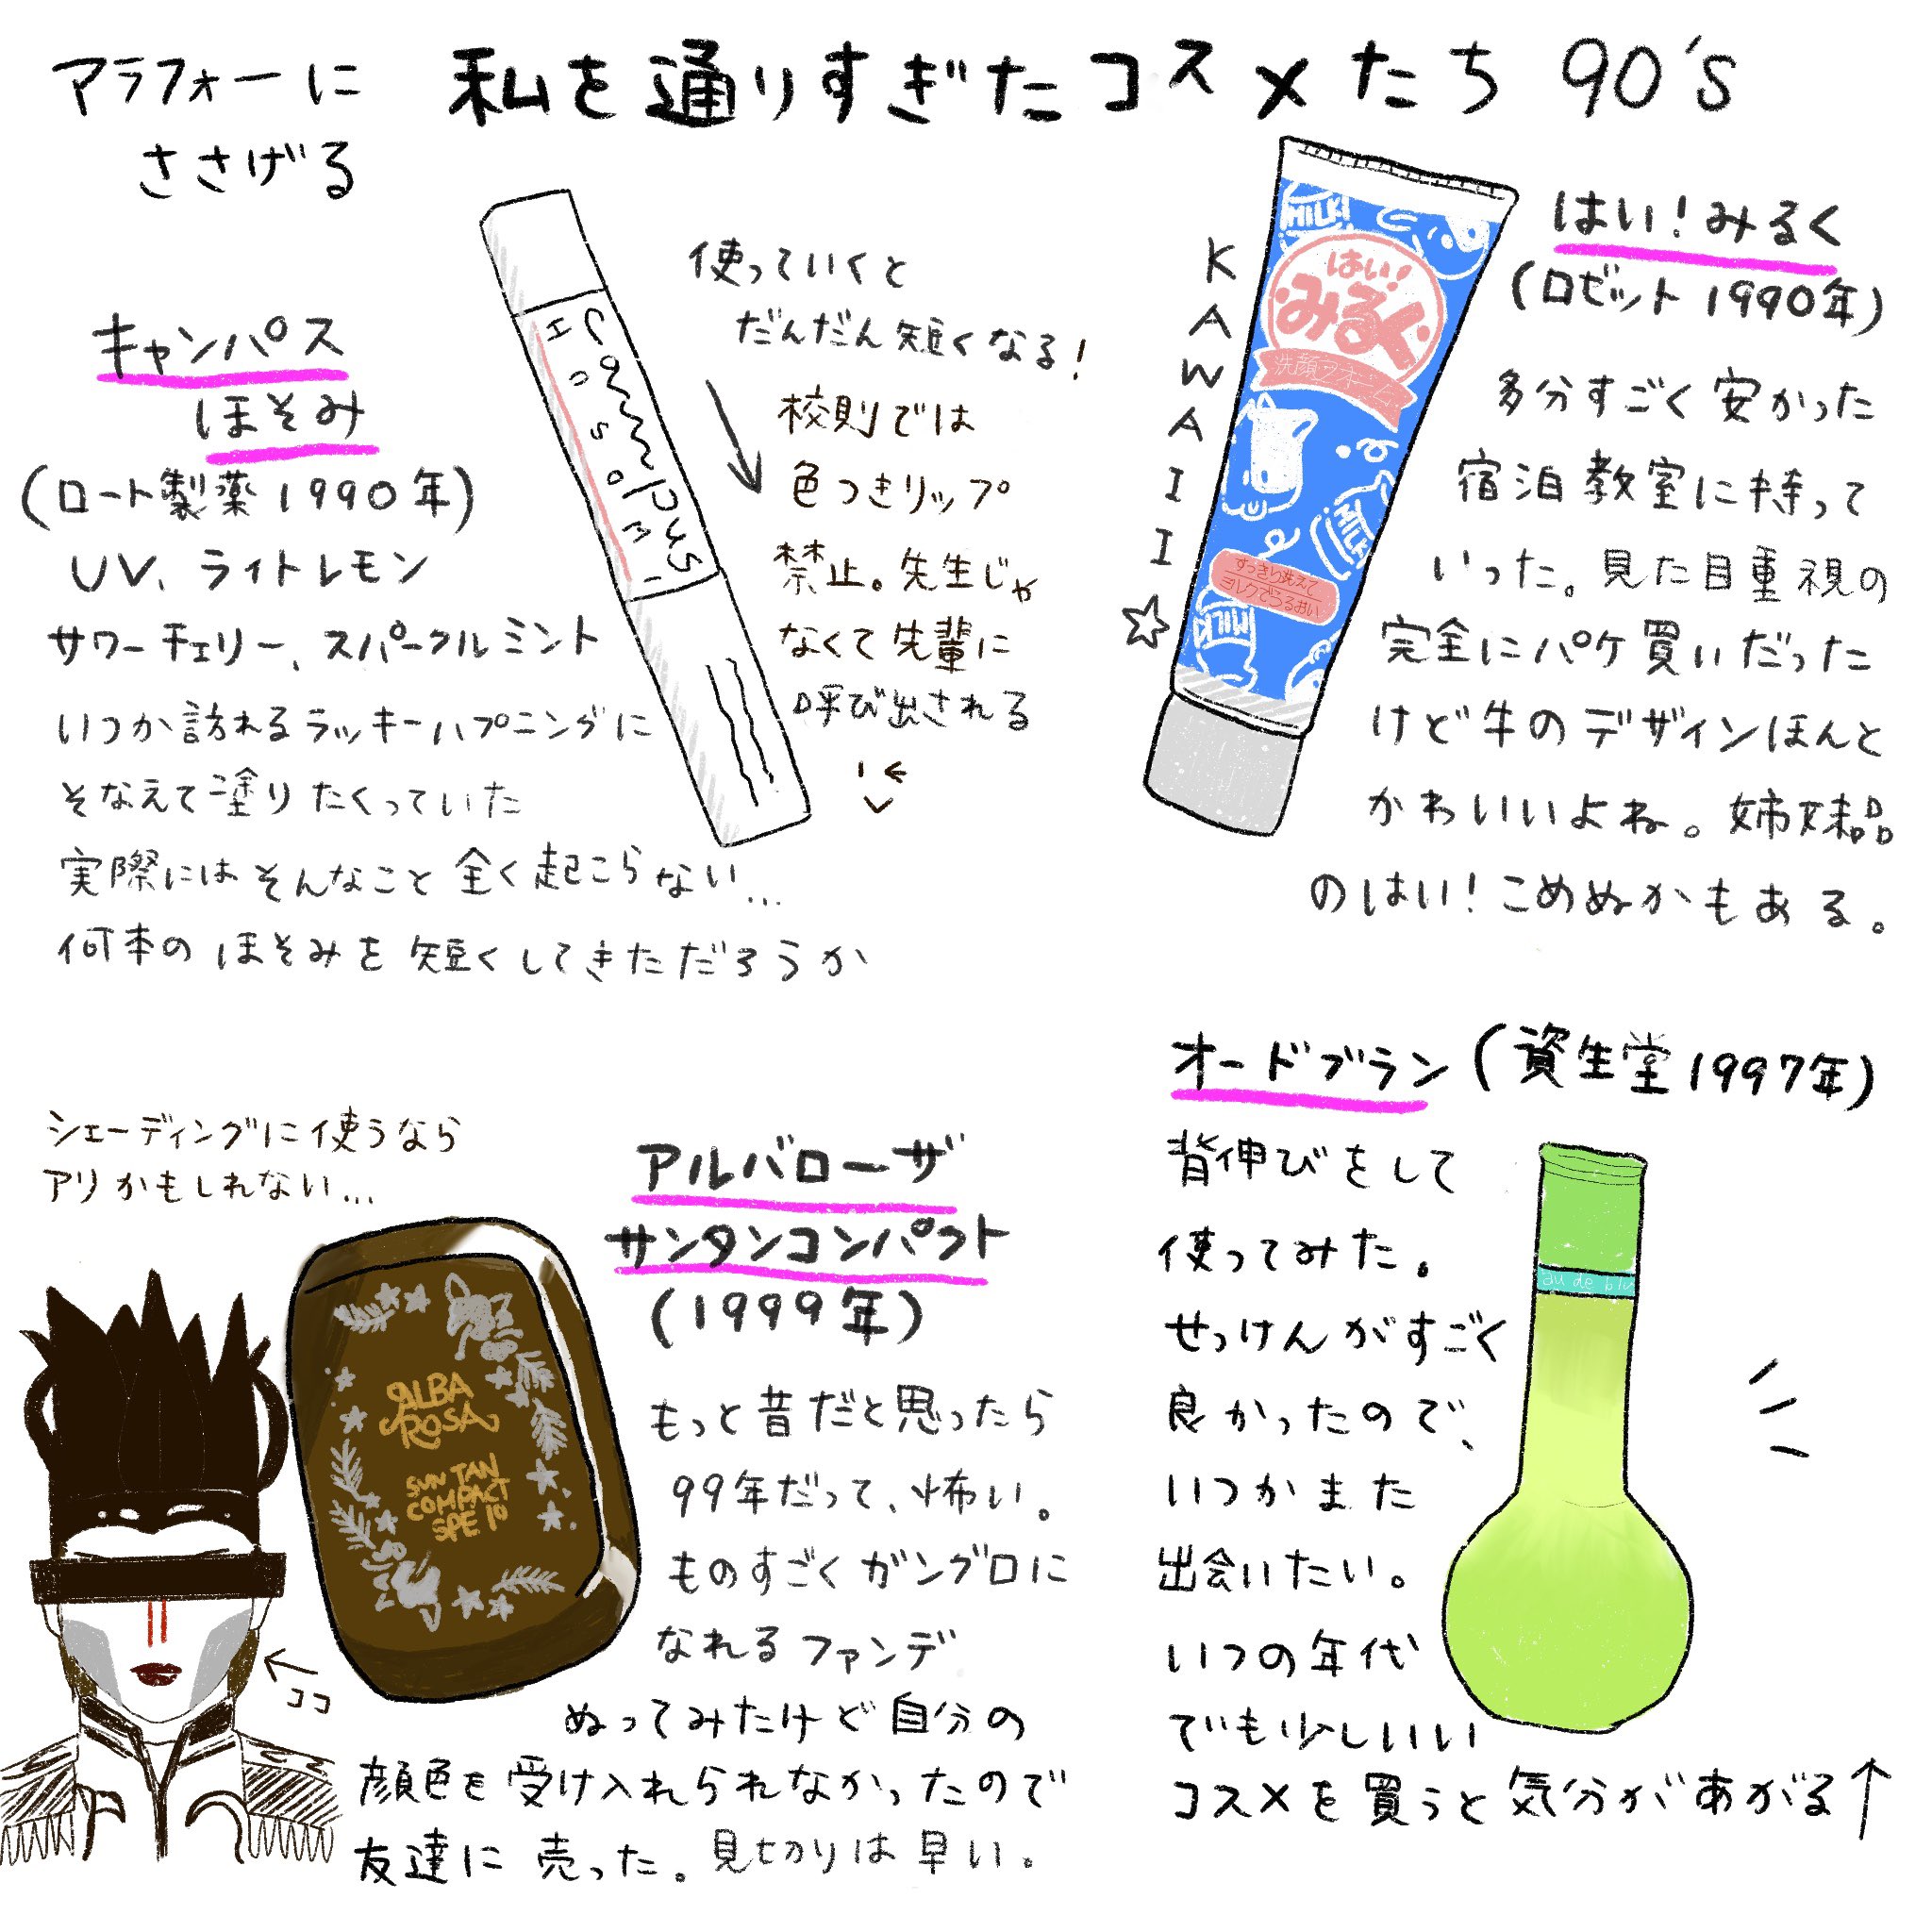 アラフォーに
ささげる
私を通りすぎたコスメたち 90's
キャンパス
ほそみ
(ロート製薬 1990年)
UV、ライトレモン
サワーチェリー、スパークルミント
いつか訪れるラッキーハプニングに
そなえて塗りたくっていた
実際にはそんなこと全く起こらない...
何本のほそみを短くしてきただろうか
Campus
HOSOMI
使っていくと
だんだん短くなる!
校則では
色つきリップ
禁止。先生じゃ
なくて先輩に
呼び出される
KAWAII☆
MILK
はい!
みるく
洗顔フォーム
MILK
すっきり洗えて
ミルクでうるおい
MILK
はい!みるく
(ロゼット 1990年)
多分すごく安かった
宿泊教室に持って
いった。見た目重視の
完全にパケ買いだった
けど牛のデザインほんと
かわいいよね。姉妹品
のはい!こめぬかもある。
シェーディングに使うなら
アリかもしれない...
ココ
ALBA
ROSA
SUN TAN
COMPACT
SPE 10
アルバローザ
サンタンコンパクト
(1999年)
もっと昔だと思ったら
99年だって、怖い。
ものすごくガングロに
なれるファンデ
ぬってみたけど自分の
顔色を受け入れられなかったので
友達に売った。見切りは早い。
オードブラン(資生堂1997年)
背伸びをして
使ってみた。
せっけんがすごく
良かったので、
いつかまた
出会いたい。
いつの年代
でも少しいい
コスメを買うと気分があがる↑
au de bl